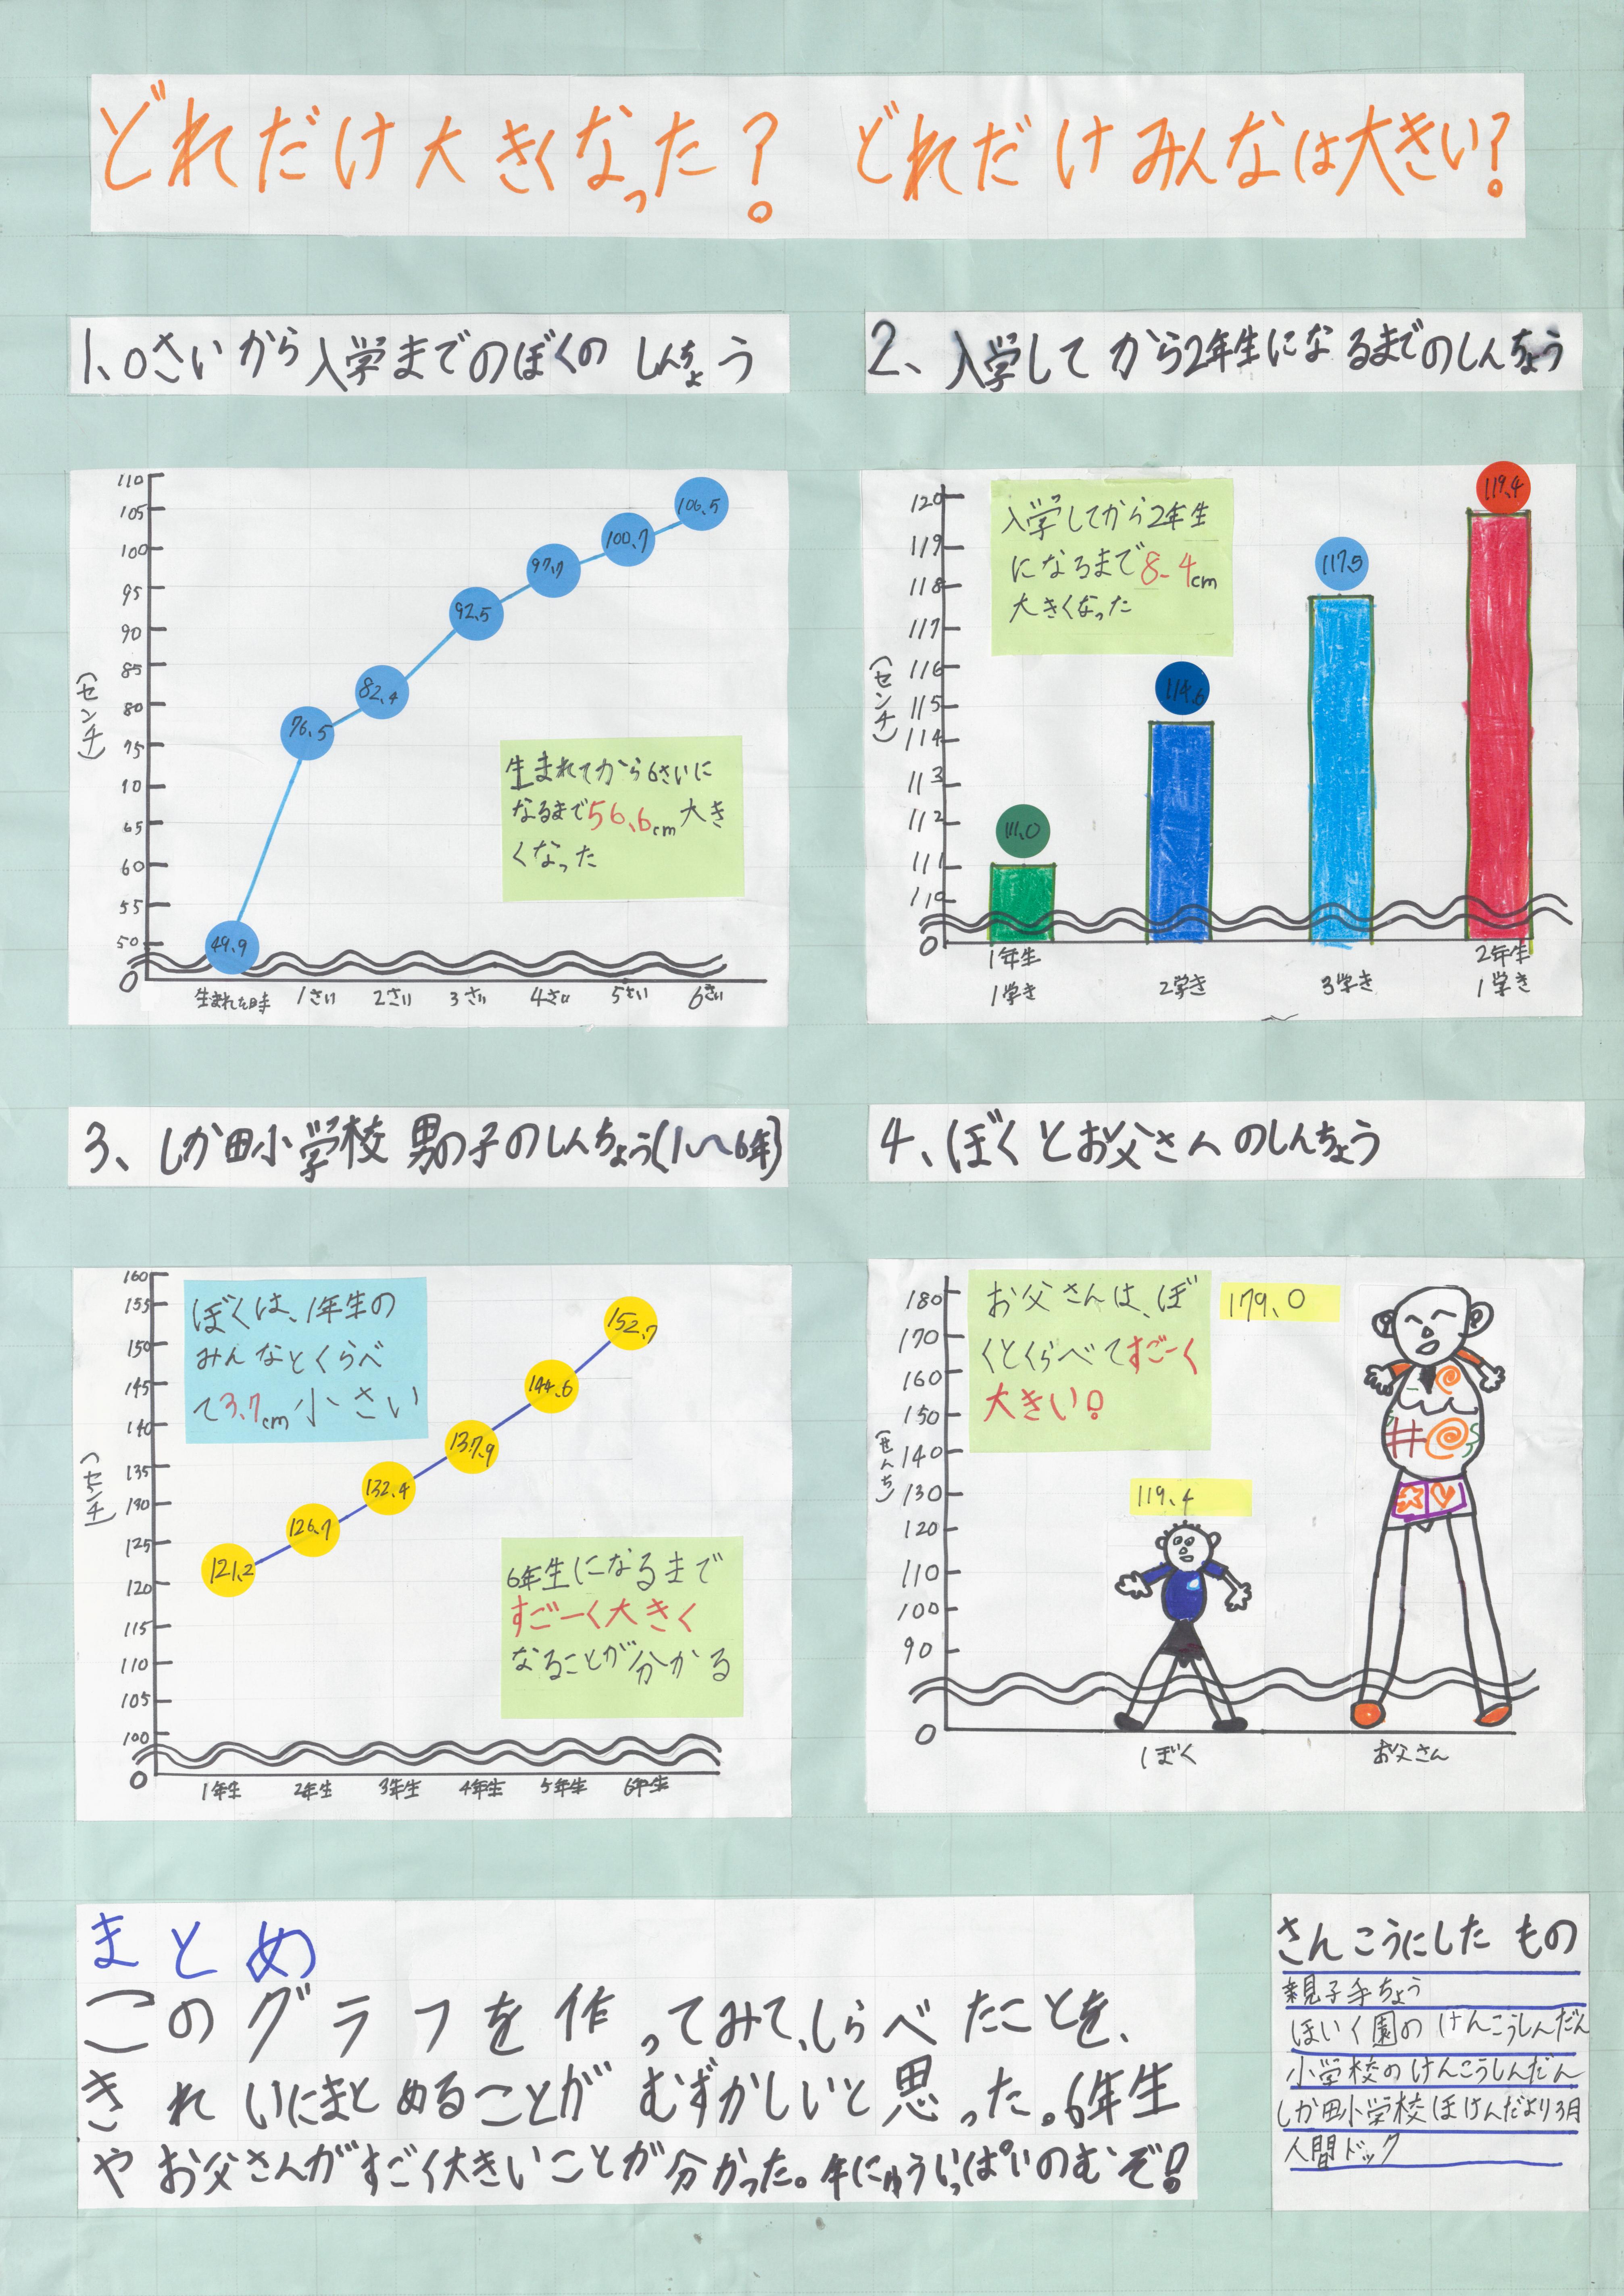 どれだけ大きくなった? どれだけみんなは大きい?
1、0さいから入学までのぼくのしんちょう
110
105
100
95
90
85
80
75
10
65
60
55
50
0
(センチ)
49.9
76.5
82.4
92.5
97.7
100.7
106.5
生まれてから6さいに
なるまで56.6cm大き
くなった
生まれた時
1さい
2さい
3さい
4さい
5さい
6さい
2、入学してから2年生になるまでのしんちょう
120
119
118
117
116
115
114
113
112
111
110
0
(センチ)
入学してから2年生
になるまで8.4cm
大きくなった
111.0
114.6
117.5
119.4
1年生
1学き
2学き
3学き
2年生
1学き
3、しか田小学校男の子のしんちょう(1〜6年)
160
155
150
145
140
135
130
125
120
115
110
105
100
0
(センチ)
ぼくは、1年生の
みんなとくらべ
て3.7cm小さい
121.2
126.7
132.4
137.9
144.6
152.7
6年生になるまで
すごーく大きく
なることが分かる
1年生
2年生
3年生
4年生
5年生
6年生
4、ぼくとお父さんのしんちょう
180
170
160
150
140
130
120
110
100
90
0
(せんち)
お父さんは、ぼ
くとくらべてすごーく
大きい!
179.0
119.4
ぼく
お父さん
まとめ
このグラフを作ってみて、しらべたことを、
きれいにまとめることがむずかしいと思った。6年生
やお父さんがすごく大きいことが分かった。牛にゅういっぱいのむぞ!
さんこうにしたもの
親子手ちょう
ほいく園のけんこうしんだん
小学校のけんこうしんだん
しか田小学校ほけんだより3月
人間ドック